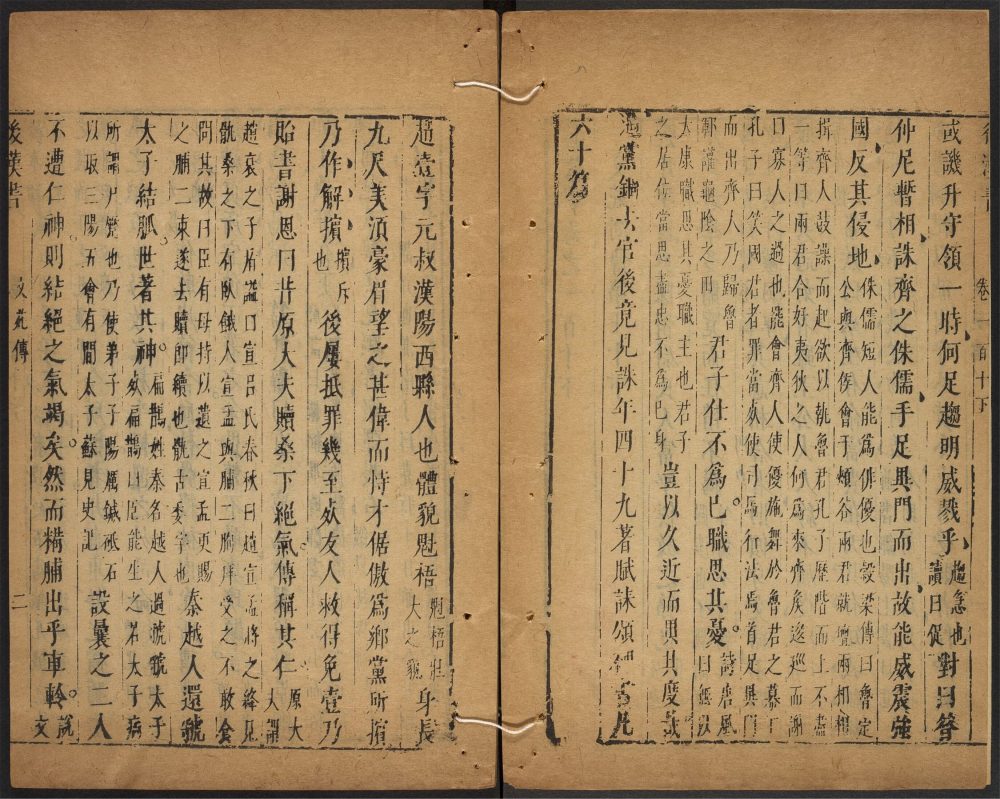 卷一百十下
或譏升守領一時何足趨明威戮乎 趨急也讀曰促 對曰昔
仲尼暫相誅齊之侏儒手足異門而出故能威震強
國反其侵地 侏儒短人能爲俳優也穀梁傳曰魯定公與齊侯會于頰谷兩君就壇兩相相
揖齊人鼓譟而起欲以執魯君孔子歷階而上不盡
一等曰兩君合好夷狄之人何爲來齊矦逡巡而謝
曰寡人之過也罷會齊人使優施舞於魯君之幕下
孔子曰笑國君者罪當㱙使司馬行法焉首足異門
而出齊人乃歸魯
鄆讙龜陰之田 君子仕不爲已職思其憂 詩唐風曰無以
太康職思其憂職主也君子
之居位當思盡忠不爲巳身 豈以久近而異其度哉
黨錮去官後竟見誅年四十九著賦誄頌 凡
六十篇
趙壹字元叔漢陽西縣人也體貌魁梧 魁梧壯大之貌 身長
九尺美須豪眉望之甚偉而恃才倨傲爲鄉黨所擯
乃作解擯 擯斥也 後屢抵罪幾至㱙友人救得免壹乃
貽書謝恩曰昔原大夫贖桑下絕氣傳稱其仁 原大大謂
趙衰之子盾謚曰宣呂氏春秋曰趙宣孟將之絳見
骩桑之下有臥餓人宣孟與脯二朐拜受之不敢食
問其故曰臣有母持以遺之宣孟更賜
之脯二束遂去贖卽續也骩古委字也 秦越人還虢
太子結脈世著其神 扁鵲姓秦名越人過虢虢太子㱙扁鵲曰臣能生之若太子病
所謂尸蹷也乃使弟子子陽厲鍼砥石
以取三陽五會有間太子蘇見史記 設曩之二人
不遭仁神則結絕之氣竭矣然而糒脯出乎車軨 說文
後漢書 文苑傳 二